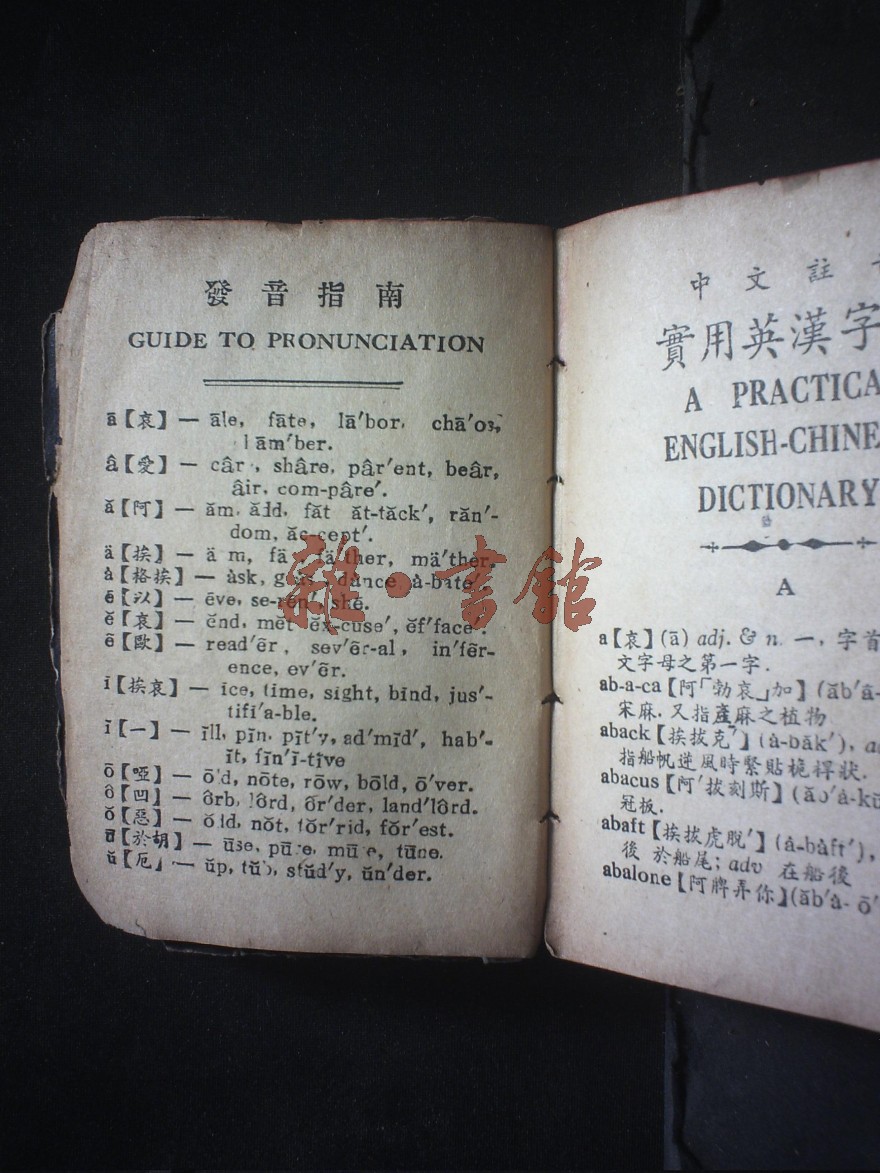 發音指南
GUIDE TO PRONUNCIATION
ā【哀】— āle, fāte, lā′bor, chā′os,
ām′ber.
â【愛】— câr, shâre, pâr′ent, beâr,
âir, com-pâre′.
ă【阿】— ăm, ădd, făt ăt-tăck′, răn′-
dom, ăc-cept′.
ä【挨】— ä m, fä ther, mä′ther.
ȧ【格挨】— ȧsk, dȧnce, ȧ-bāte
ē【以】— ēve, shē.
ĕ【哀】— ĕnd, mĕt ĕx-cuse′, ĕf′face′.
ẽ【歐】— read′ẽr, sev′ẽr-al, in′fẽr-
ence, ev′ẽr.
ī【挨哀】— īce, tīme, sight, bīnd, jus′-
tifī′a-ble.
ĭ【一】— ĭll, pĭn, pĭt′y, ad′mĭd′, hab′-
ĭt, fĭn′ĭ-tĭve
ō【啞】— ōld, nōte, rōw, bōld, ō′ver.
ô【凹】— ôrb, lôrd, ôr′der, land′lôrd.
ŏ【惡】— ŏdd, nŏt, fŏr′est.
ū【於胡】— ūse, pūre, mūte, tūne.
ŭ【厄】— ŭp, tŭb, stŭd′y, ŭn′der.
中文註
實用英漢字
A PRACTICA
ENGLISH-CHINE
DICTIONARY
A
a【哀】(ā) adj. & n. 一, 字首
文字母之第一字.
ab-a-ca【阿「勃哀」加】(ăb′â-
宋麻. 又指產麻之植物
aback【挨拔克′】(ȧ-băk′),
指船帆逆風時緊貼桅桿狀.
abacus【阿′拔刻斯】(ăb′ȧ-kŭ
冠板.
abaft【挨拔虎脫′】(ȧ-bȧft′),
後 於船尾; adv 在船後
abalone【阿脾弄你】(ăb′ȧ-ō′
雜·書館